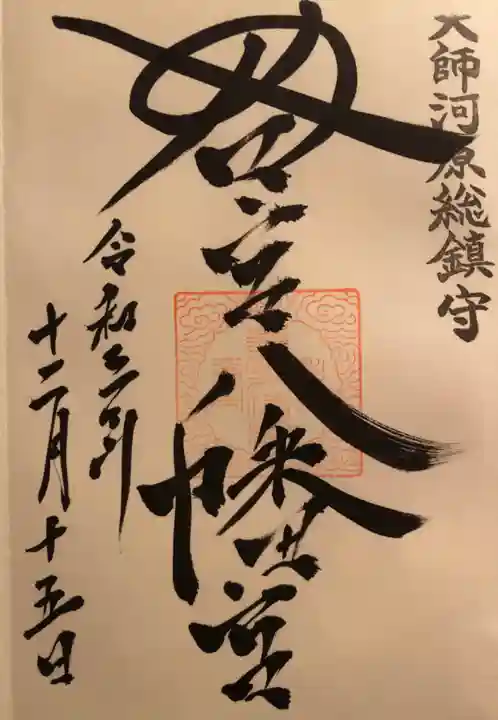 大師河原総鎮守
若宮八幡宮
令和 年
十二月十五日